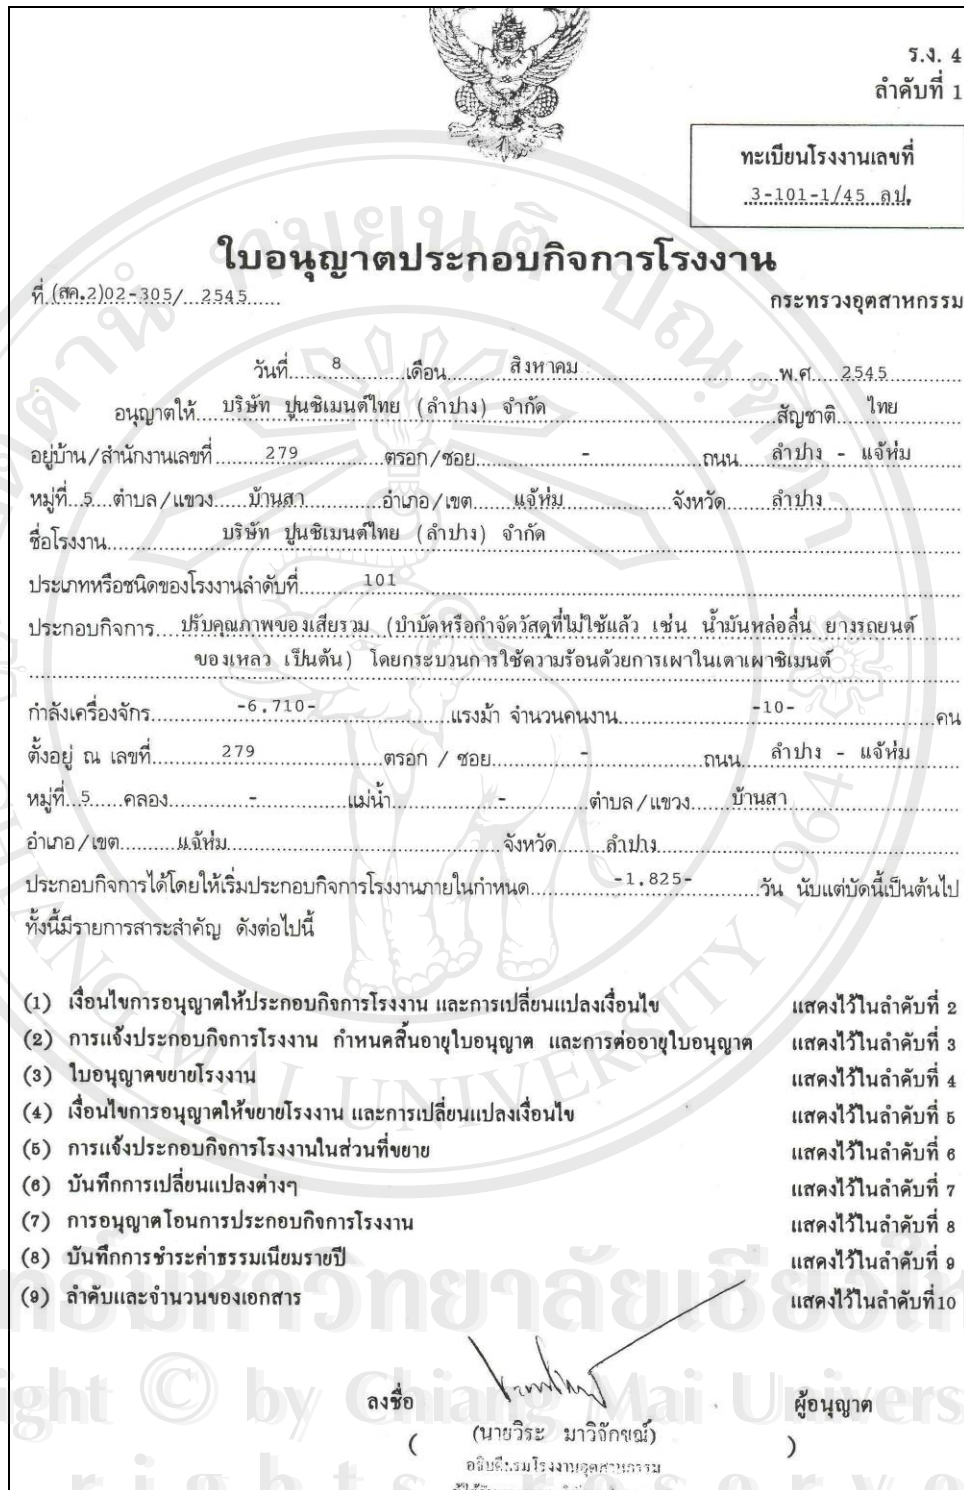 ร.ง. 4
ลำดับที่ 1
ทะเบียนโรงงานเลขที่
3-101-1/45 ลป.
ใบอนุญาตประกอบกิจการโรงงาน
ที่ (สค.2)02-305/ 2545
กระทรวงอุตสาหกรรม
วันที่ 8 เดือน สิงหาคม พ.ศ 2545
อนุญาตให้ บริษัท ปูนซิเมนต์ไทย (ลำปาง) จำกัด สัญชาติ ไทย
อยู่บ้าน/สำนักงานเลขที่ 279 ตรอก/ซอย - ถนน ลำปาง - แจ้ห่ม
หมู่ที่ 5 ตำบล/แขวง บ้านสา อำเภอ/เขต แจ้ห่ม จังหวัด ลำปาง
ชื่อโรงงาน บริษัท ปูนซิเมนต์ไทย (ลำปาง) จำกัด
ประเภทหรือชนิดของโรงงานลำดับที่ 101
ประกอบกิจการ ปรับคุณภาพของเสียรวม (บำบัดหรือกำจัดวัสดุที่ไม่ใช้แล้ว เช่น น้ำมันหล่อลื่น ยางรถยนต์
ของเหลว เป็นต้น) โดยกระบวนการใช้ความร้อนด้วยการเผาในเตาเผาซิเมนต์
กำลังเครื่องจักร -6,710- แรงม้า จำนวนคนงาน -10- คน
ตั้งอยู่ ณ เลขที่ 279 ตรอก / ซอย - ถนน ลำปาง - แจ้ห่ม
หมู่ที่ 5 คลอง - แม่น้ำ - ตำบล/แขวง บ้านสา
อำเภอ/เขต แจ้ห่ม จังหวัด ลำปาง
ประกอบกิจการได้โดยให้เริ่มประกอบกิจการโรงงานภายในกำหนด -1,825- วัน นับแต่บัดนี้เป็นต้นไป
ทั้งนี้มีรายการสาระสำคัญ ดังต่อไปนี้
(1) เงื่อนไขการอนุญาตให้ประกอบกิจการโรงงาน และการเปลี่ยนแปลงเงื่อนไข แสดงไว้ในลำดับที่ 2
(2) การแจ้งประกอบกิจการโรงงาน กำหนดสิ้นอายุใบอนุญาต และการต่ออายุใบอนุญาต แสดงไว้ในลำดับที่ 3
(3) ใบอนุญาตขยายโรงงาน แสดงไว้ในลำดับที่ 4
(4) เงื่อนไขการอนุญาตให้ขยายโรงงาน และการเปลี่ยนแปลงเงื่อนไข แสดงไว้ในลำดับที่ 5
(5) การแจ้งประกอบกิจการโรงงานในส่วนที่ขยาย แสดงไว้ในลำดับที่ 6
(6) บันทึกการเปลี่ยนแปลงต่างๆ แสดงไว้ในลำดับที่ 7
(7) การอนุญาตโอนการประกอบกิจการโรงงาน แสดงไว้ในลำดับที่ 8
(8) บันทึกการชำระค่าธรรมเนียมรายปี แสดงไว้ในลำดับที่ 9
(9) ลำดับและจำนวนของเอกสาร แสดงไว้ในลำดับที่10
ลงชื่อ ผู้อนุญาต
(นายวีระ มาวิจักขณ์)
( )
อธิบดีกรมโรงงานอุตสาหกรรม